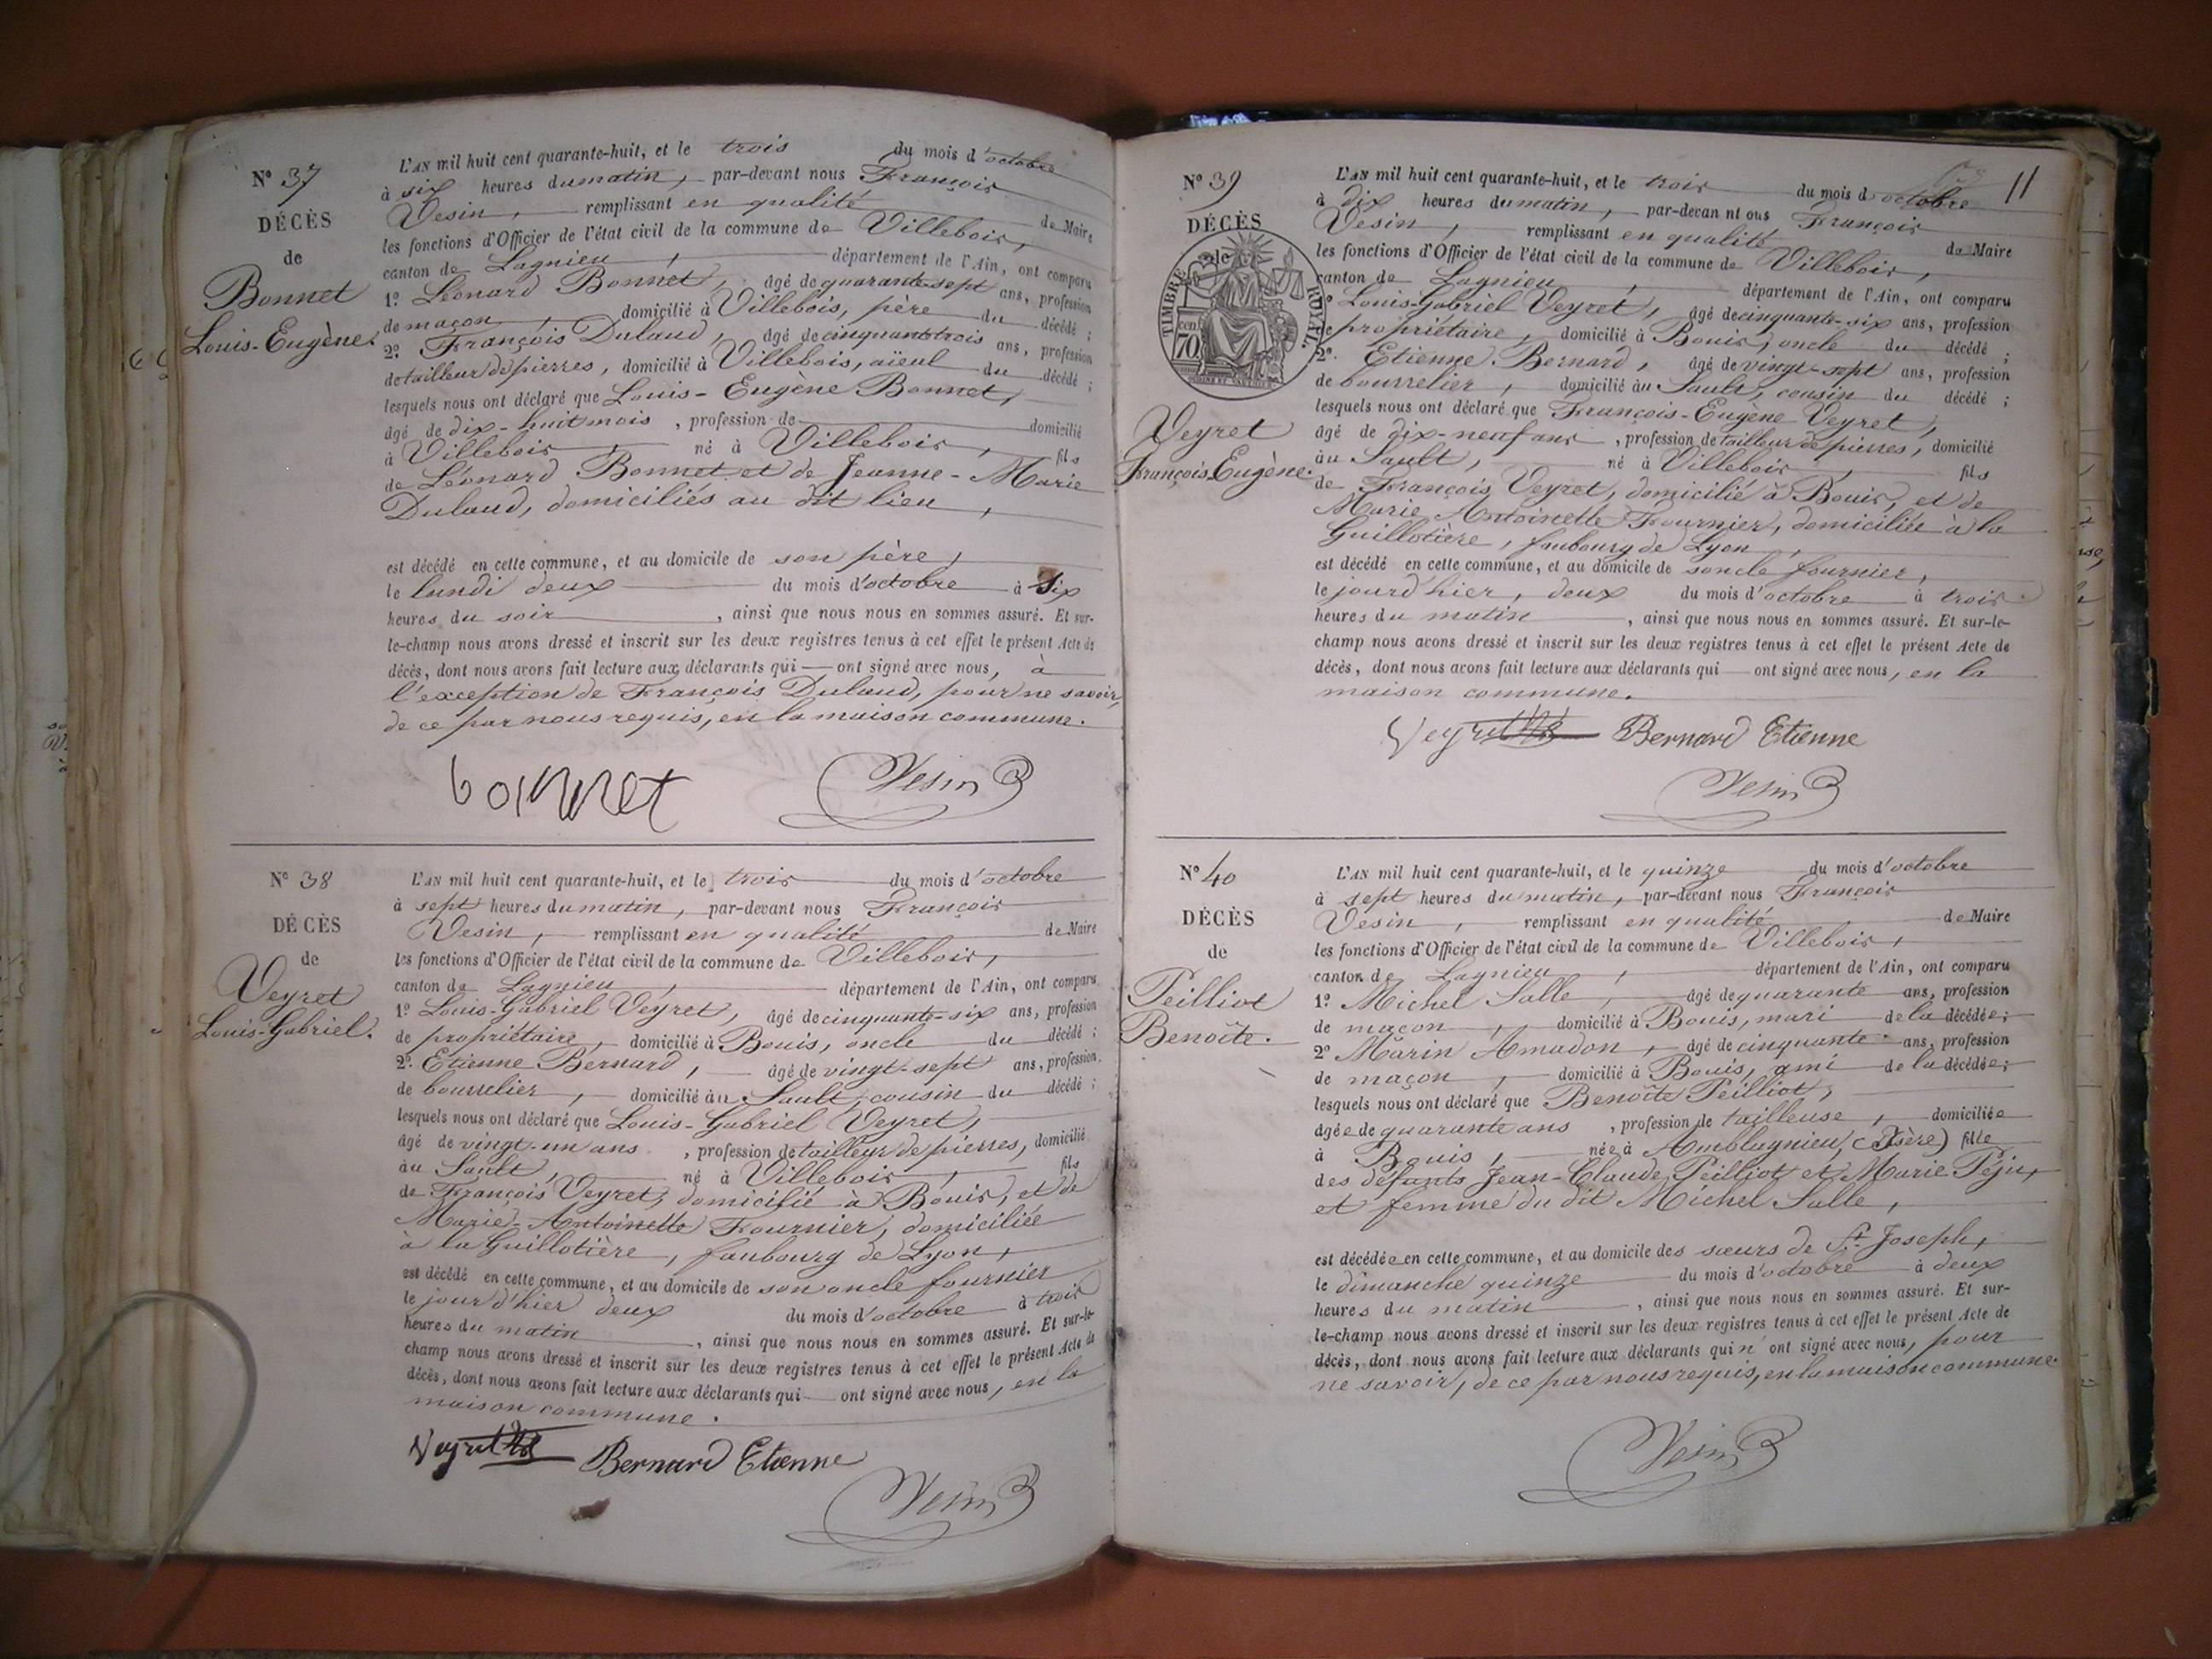 N° 37
DÉCÈS
de
Bonnet
Louis-Eugène.
L'AN mil huit cent quarante-huit, et le trois du mois d'octobre
à six heures du matin, par-devant nous François
Vesin, remplissant en qualité de Maire
les fonctions d'Officier de l'état civil de la commune de Villebois,
canton de Lagnieu, département de l'Ain, ont comparu
1° Léonard Bonnet, âgé de quarante-sept ans, profession
de maçon, domicilié à Villebois, père du décédé;
2° François Dulaud, âgé de cinquante trois ans, profession
de tailleur de pierres, domicilié à Villebois, aïeul du décédé;
lesquels nous ont déclaré que Louis-Eugène Bonnet,
âgé de dix-huit mois, profession de domicilié
à Villebois né à Villebois, fils
de Léonard Bonnet et de Jeanne-Marie
Dulaud, domiciliés au dit lieu,
est décédé en cette commune, et au domicile de son père,
le lundi deux du mois d'octobre à Six
heures du soir, ainsi que nous nous en sommes assuré. Et sur-
le-champ nous avons dressé et inscrit sur les deux registres tenus à cet effet le présent Acte de
décès, dont nous avons fait lecture aux déclarants qui ont signé avec nous, à
l'exception de François Dulaud, pour ne savoir,
de ce par nous requis, en la maison commune.
bonnet Vesin
N° 38
DÉCÈS
de
Veyret
Louis-Gabriel.
L'AN mil huit cent quarante-huit, et le trois du mois d'octobre
à sept heures du matin, par-devant nous François
Vesin, remplissant en qualité de Maire
les fonctions d'Officier de l'état civil de la commune de Villebois,
canton de Lagnieu, département de l'Ain, ont comparu
1° Louis-Gabriel Veyret, âgé de cinquante-six ans, profession
de propriétaire, domicilié à Bouis, oncle du décédé;
2° Etienne Bernard, âgé de vingt-sept ans, profession
de bourrelier, domicilié au Sault, cousin du décédé;
lesquels nous ont déclaré que Louis-Gabriel Veyret,
âgé de vingt-un ans, profession de tailleur de pierres, domicilié
au Sault, né à Villebois, fils
de François Veyret, domicilié à Bouis, et de
Marie-Antoinette Fournier, domiciliée
à la Guillotière, faubourg de Lyon,
est décédé en cette commune, et au domicile de son oncle fournier
le jour d'hier deux du mois d'octobre à trois
heures du matin, ainsi que nous nous en sommes assuré. Et sur-le-
champ nous avons dressé et inscrit sur les deux registres tenus à cet effet le présent Acte de
décès, dont nous avons fait lecture aux déclarants qui ont signé avec nous, en la
maison commune.
Veyret Bernard Etienne
Vesin
11
N° 39
DÉCÈS
de
TIMBRE ROYAL
70 cen
Veyret
François-Eugène.
L'AN mil huit cent quarante-huit, et le trois du mois d octobre
à dix heures du matin, par-devan nt ous François
Vesin, remplissant en qualité de Maire
les fonctions d'Officier de l'état civil de la commune de Villebois,
canton de Lagnieu, département de l'Ain, ont comparu
1° Louis-Gabriel Veyret, âgé de cinquante-six ans, profession
de propriétaire, domicilié à Bouis, oncle du décédé;
2° Etienne Bernard, âgé de vingt-sept ans, profession
de bourrelier, domicilié au Sault, cousin du décédé;
lesquels nous ont déclaré que François-Eugène Veyret,
âgé de dix-neuf ans, profession de tailleur de pierres, domicilié
au Sault, né à Villebois, fils
de François Veyret, domicilié à Bouis, et de
Marie Antoinette Fournier, domiciliée à la
Guillotière, faubourg de Lyon,
est décédé en cette commune, et au domicile de s'oncle fournier,
le jourd'hier, deux du mois d'octobre à trois
heures du matin, ainsi que nous nous en sommes assuré. Et sur-le-
champ nous avons dressé et inscrit sur les deux registres tenus à cet effet le présent Acte de
décès, dont nous avons fait lecture aux déclarants qui ont signé avec nous, en la
maison commune.
Veyret Bernard Etienne
Vesin
N° 40
DÉCÈS
de
Peilliot
Benoîte.
L'AN mil huit cent quarante-huit, et le quinze du mois d'octobre
à sept heures du matin, par-devant nous François
Vesin, remplissant en qualité de Maire
les fonctions d'Officier de l'état civil de la commune de Villebois,
canton de Lagnieu, département de l'Ain, ont comparu
1° Michel Salle, âgé de quarante ans, profession
de maçon, domicilié à Bouis, mari de la décédée;
2° Marin Amadon, âgé de cinquante ans, profession
de maçon, domicilié à Bouis, ami de la décédée;
lesquels nous ont déclaré que Benoîte Peilliot,
âgée de quarante ans, profession de tailleuse, domiciliée
à Bouis, née à Amblagnieu, (Isère) fille
des défunts Jean-Claude Peilliot et Marie Péju,
et femme du dit Michel Salle,
est décédée en cette commune, et au domicile des sœurs de St. Joseph,
le dimanche quinze du mois d'octobre à deux
heures du matin, ainsi que nous nous en sommes assuré. Et sur-
le-champ nous avons dressé et inscrit sur les deux registres tenus à cet effet le présent Acte de
décès, dont nous avons fait lecture aux déclarants qui n'ont signé avec nous, pour
ne savoir, de ce par nous requis, en la maison commune.
Vesin